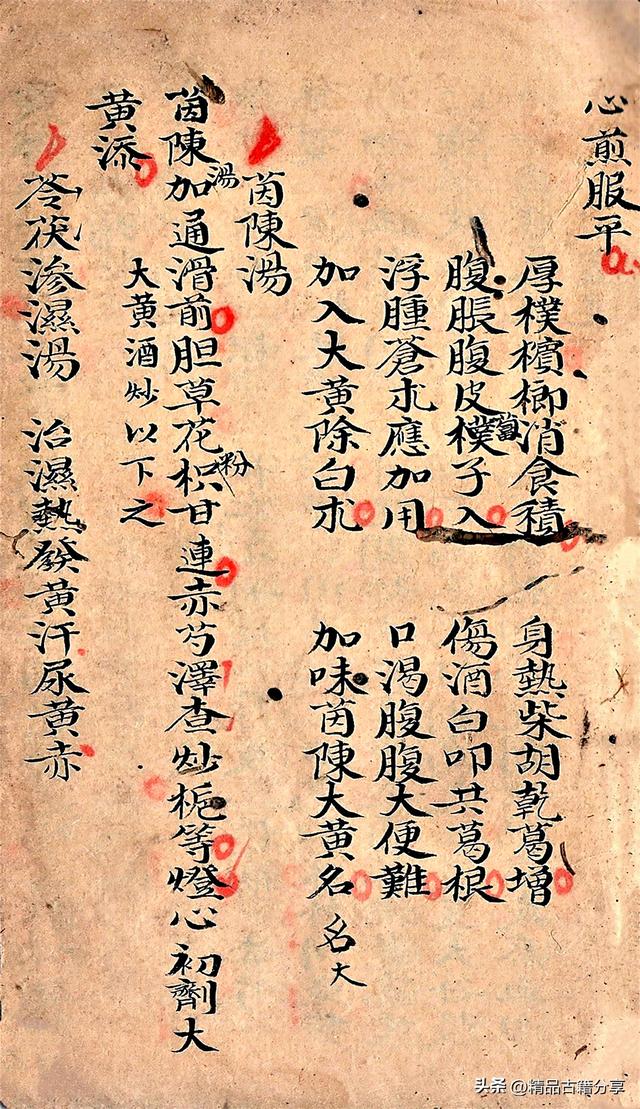 心煎服平
厚樸檳榔消食積 身熱柴胡乾葛增
腹脹腹皮樸子入 傷酒白叩共葛根
浮腫蒼朮應加用 口渴腹腹大便難
加入大黃除白朮 加味茵陳大黃名 名大
茵陳湯
茵陳湯加通滑前胆草花粉枳甘連赤芍澤查炒梔等燈心初劑大
黃添 大黃酒炒以下之
苓茯滲濕湯 治濕熱發黃汗尿黃赤
头条 @精品古籍分享